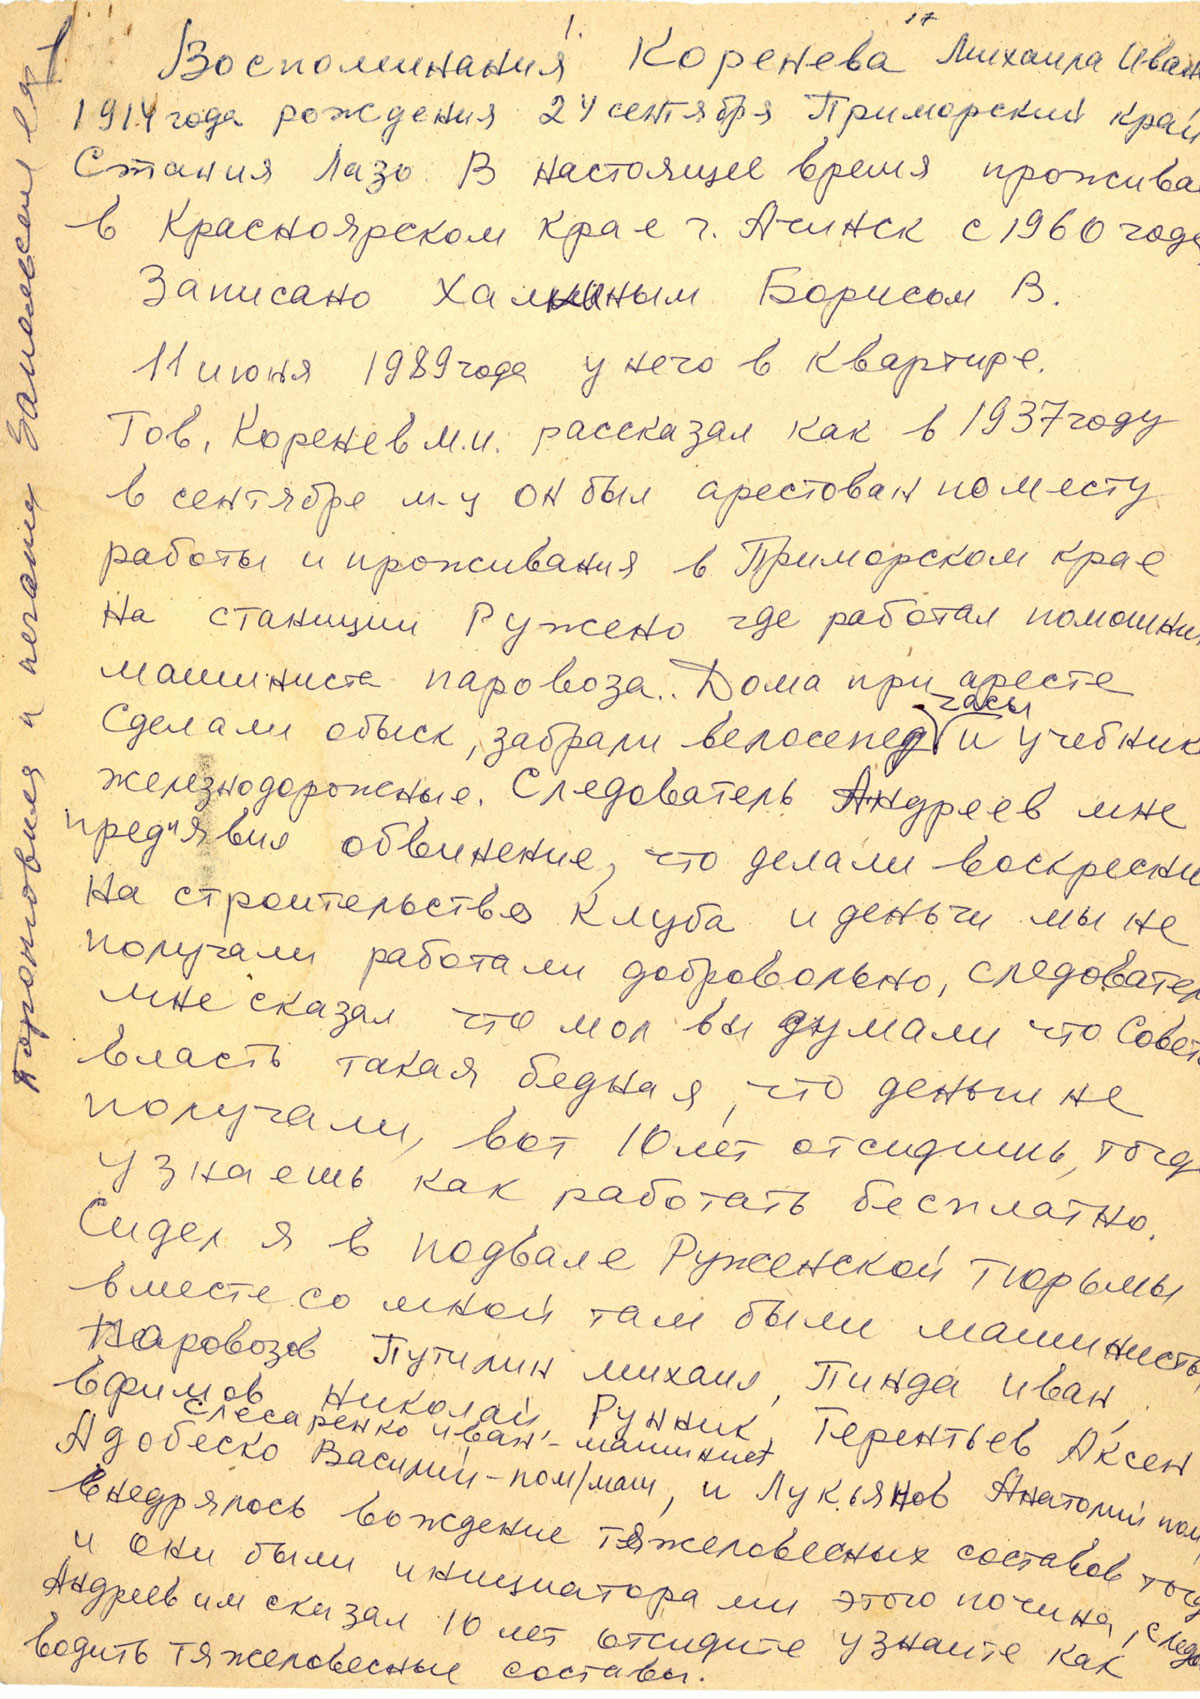 1.
17
1
Воспоминания Коренева Михаила Иван
1914 года рождения 24 сентября Приморский край
Стания Лазо В настоящее время прожива
в Красноярском крае г. Ачинск с 1960 года
Записано Халиным Борисом В.
11 июня 1989 года у него в квартире.
Тов. Коренев М.И. рассказал как в 1937 году
в сентябре м-ц он был арестован по месту
работы и проживания в Приморском крае
на станции Ружено где работал помошник
машиниста паровоза.. Дома при аресте
сделали обыск, забрали велосепед часы и учебник
железнодорожные. Следователь Андреев мне
пред"явил обвинение, что делали воскресни
на строительство клуба и деньги мы не
получали работали добровольно, следовател
мне сказал что мол вы думали что Совет
власть такая бедная, что деньги не
получали, вот 10 лет отсидишь, тогда
узнаешь как работать бесплатно.
Сидел я в подвале Руженской тюрьмы
вместе со мной там были машинисты
паровозов Путилин михаил, Пинда иван
Ефимов Николай, Рунник, Терентьев Аксен
Слесаренко иван - машинист
Адобеско Василий - пом/маш, и Лукьянов Анатолий пом
внедрялось вождение тяжеловесных составов тогда
и они были инициаторами этого почина, следов
Андреев им сказал 10 лет отсидите узнаите как
водить тяжеловесные составы.